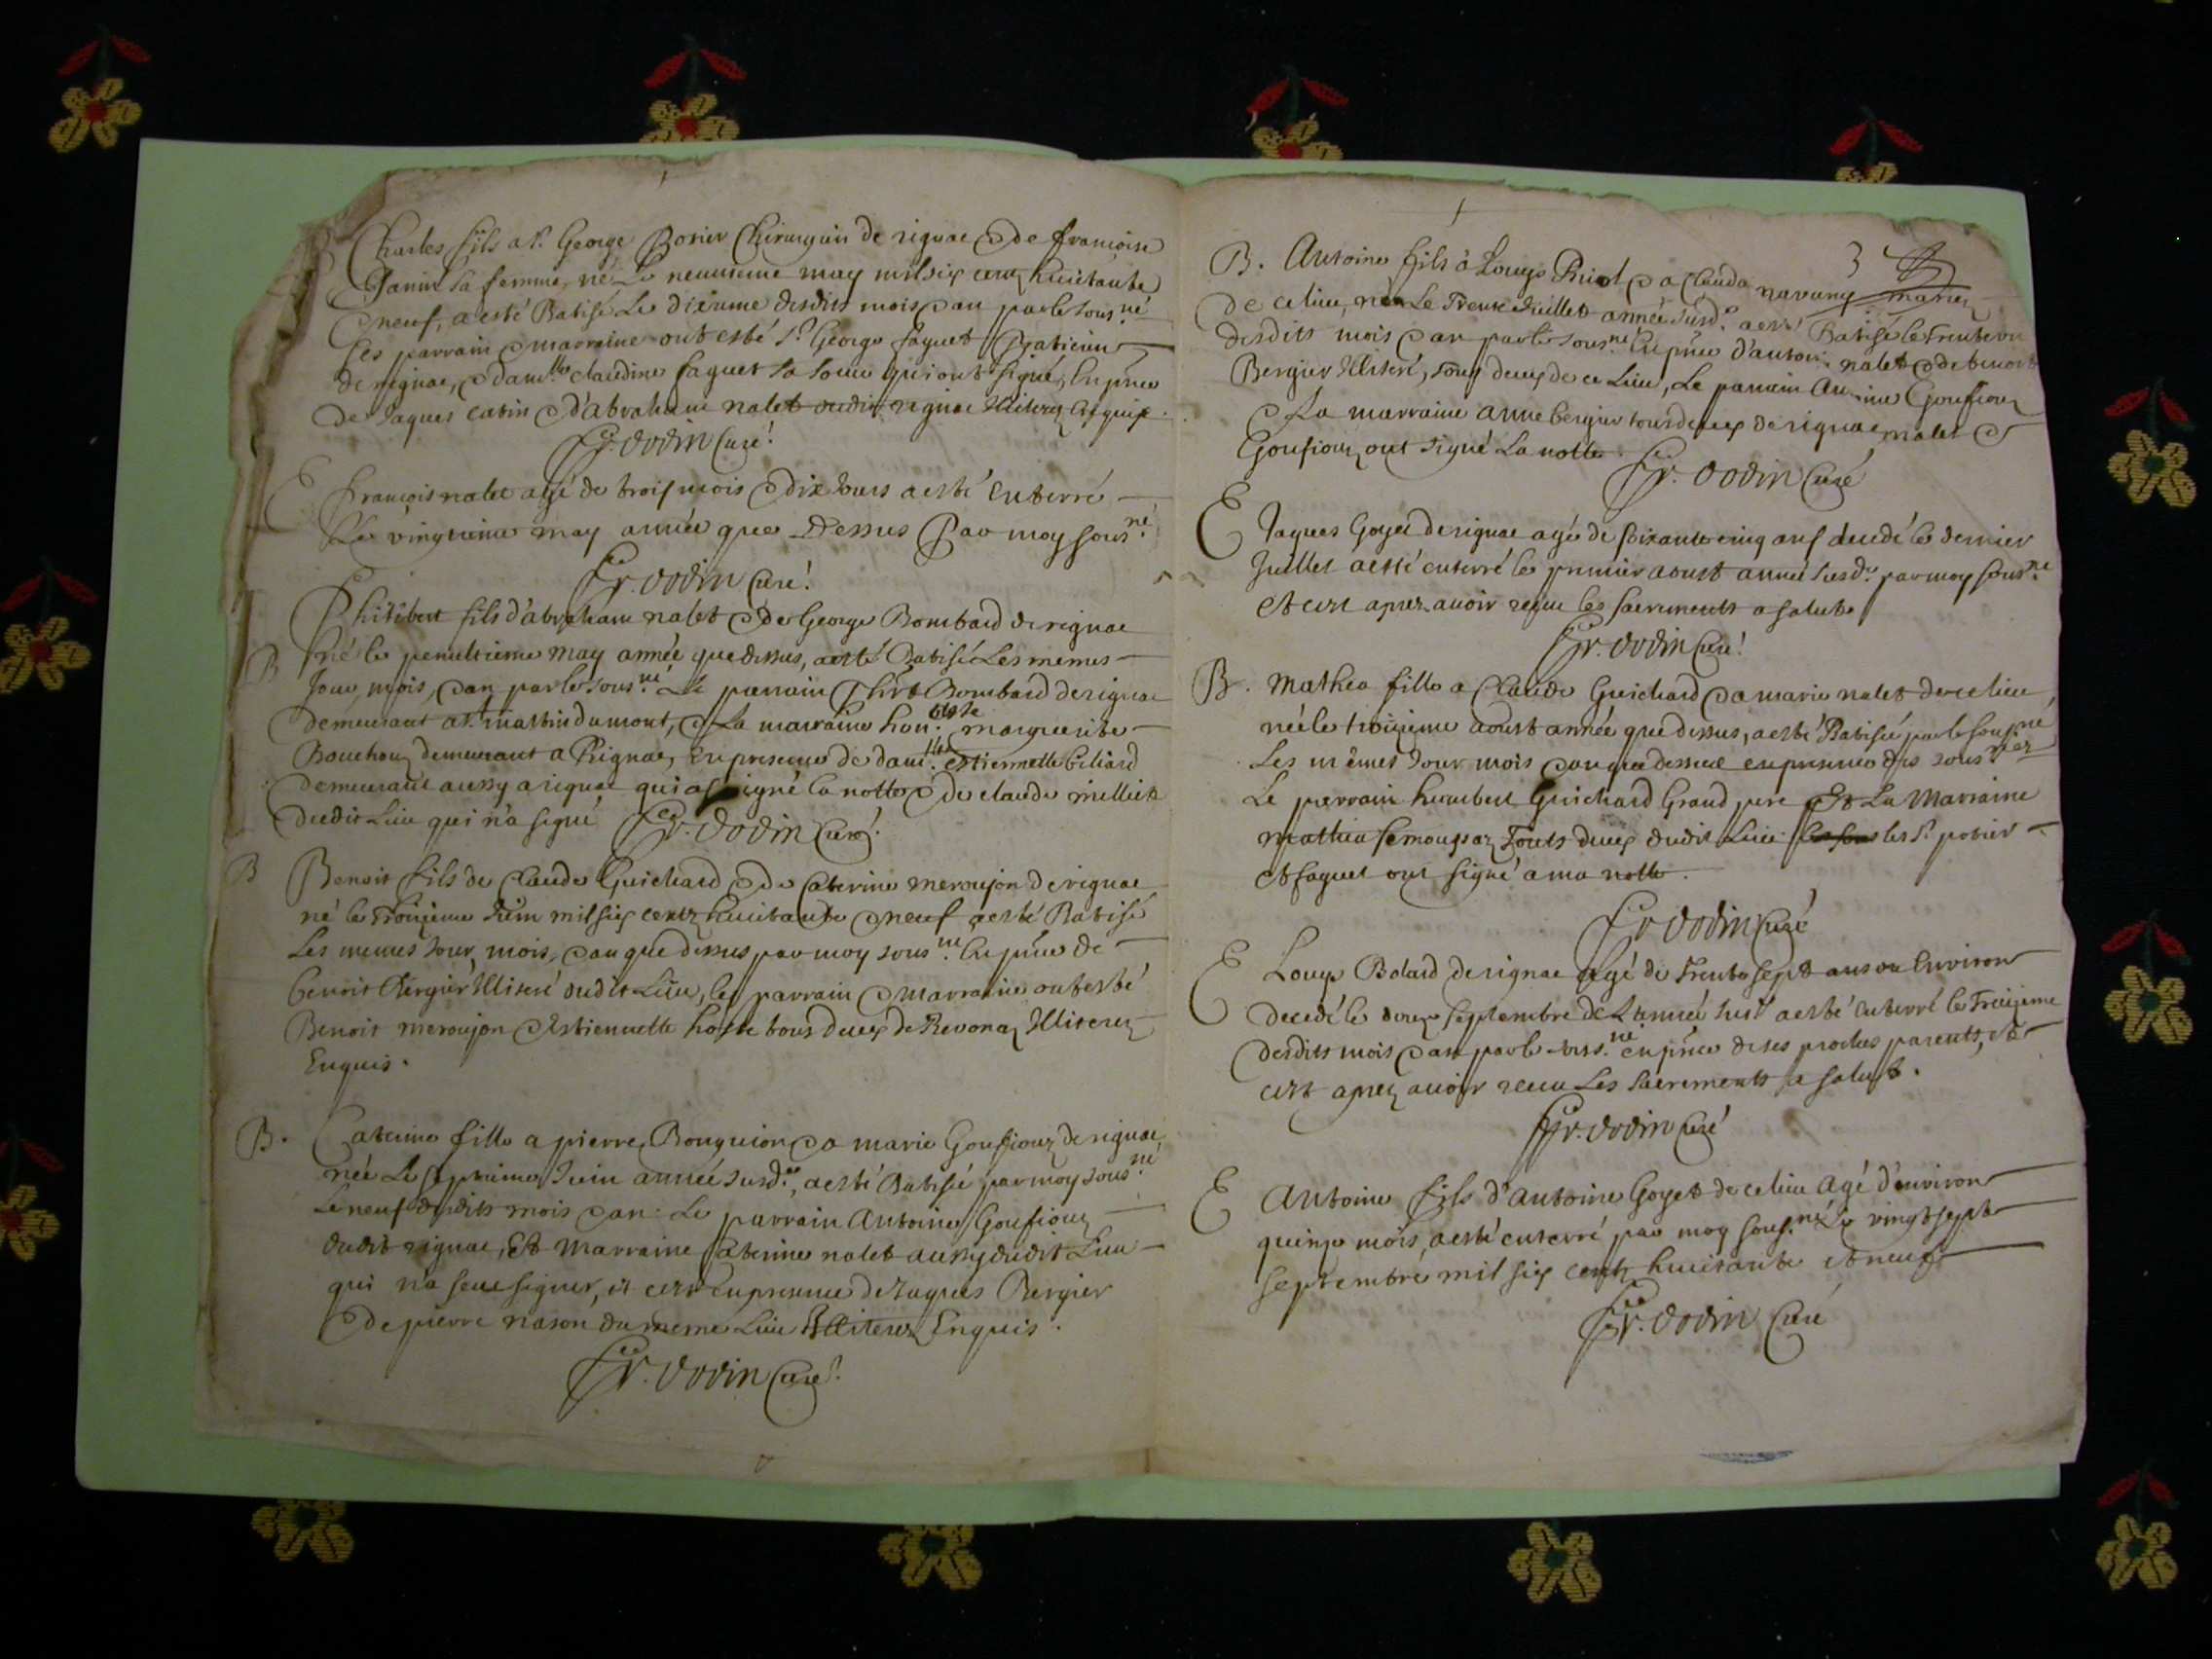 Charles fils a Sr. George Borier Chirurgien de rignac & de francoise
Janin sa femme, né Le neuvieme may mil six cent huictante
& neuf, a esté Batisé Le dixieme desdits mois & an par le sous.né
Les parrain & marraine ont esté Sr. George faguet Praticien
de rignac, & dam.lle claudine faguet sa soeur qui ont signé, En pnce
de Jaques catin & d'abraham nalet dudit rignac Illiterez Enquis.
Fr. Dodin Curé.
E François nalet agé de trois mois & dix Jours a esté Enterré
Le vingtieme may année que Dessus Par moy sous.né
Fr. Dodin Curé.
Philibert fils d'abraham nalet & de George Bombard de rignac
B né le penultieme may année que dessus, a esté Batisé Les memes
Jour, mois, & an par le sous.né Le parrain Phibt Bombard de rignac
demeurant a St. martin du mont, & La marraine hon.este marguerite
Bouchou demeurant a Rignac, En presence de dam.lle estiennette biliard
demeurant aussy a rignac qui a signé la notte & de claude milliet
dudit Lieu qui n'a signé Fr. Dodin Curé.
B Benoit fils de Claude Guichard & de Caterine meroujon de rignac
né le Troizieme Juin mil six cents huictante & neuf a esté Batisé
Les memes Jour, mois, & an que dessus par moy sous.né En pnce de
benoit Bergier Illiteré dudit Lieu, les parrain & marraine ont esté
Benoit meroujon & Estiennette hoste tous deux de Revonaz Illiterez
Enquis.
B. Caterine fille a pierre Bouguion & a marie Goufiouz de rignac
née Le septieme Juin année susd.e, a esté Batisée par moy sous.né
Le neuf desdits mois & an. Le parrain Antoine Goufiouz
dudit rignac, Et Marraine Caterine nalet aussy dudit Lieu
qui n'a sceu signer, et cest En presence de Jaques Bergier
& de pierre nason du meme Lieu Illiterez Enquis.
Fr. Dodin Curé.
3
B. Antoine fils à Louys Priol & a Clauda navung mariez
de ce lieu, né Le Trente Juillet année susd.e a esté Batisé le Trente un
desdits mois & an par le sous.né En pnce d'antoine nalet & de benoit
Bergier Illiteré, Tous deux de ce Lieu, Le parrain Antoine Goufiouz
& La marraine anne bergier tous deux de rignac, nalet &
Goufiouz ont signé La notte. Fr. Dodin Curé
E Jaques Goyet de rignac agé de soixante cinq ans decedé le dernier
Juillet a esté enterré le premier aoust année susd.e par moy sous.né
Et cest apres avoir receu les sacrements a salut
Fr. Dodin Curé.
B. Mathea fille a Claude Guichard & a marie nalet de ce lieu
née le troizieme aoust année que dessus, a esté Batisée par le sous.né
Les mêmes Jour mois & an que dessus en presence des sous.nez
Le parrain humbert Guichard Grand pere Et La Marraine
mathea Touts deux dudit Lieu les Sr. potier
Et faguet ont signé a ma notte.
Fr Dodin Curé
E Louys Bolard de rignac agé de Trente sept ans ou Environ
decedé le douze septembre de L'année susd.e a esté enterré le Treizieme
desdits mois & an par le sous.né en pnce de ses proches parents, et
cest aprez avoir receu Les sacrements a salut.
Fr. Dodin Curé
E Antoine fils d'antoine Goyet de ce lieu Agé d'environ
quinze mois, a esté enterré par moy sous.né Le vingt sept
septembre mil six cents huictante et neuf
Fr. Dodin Curé